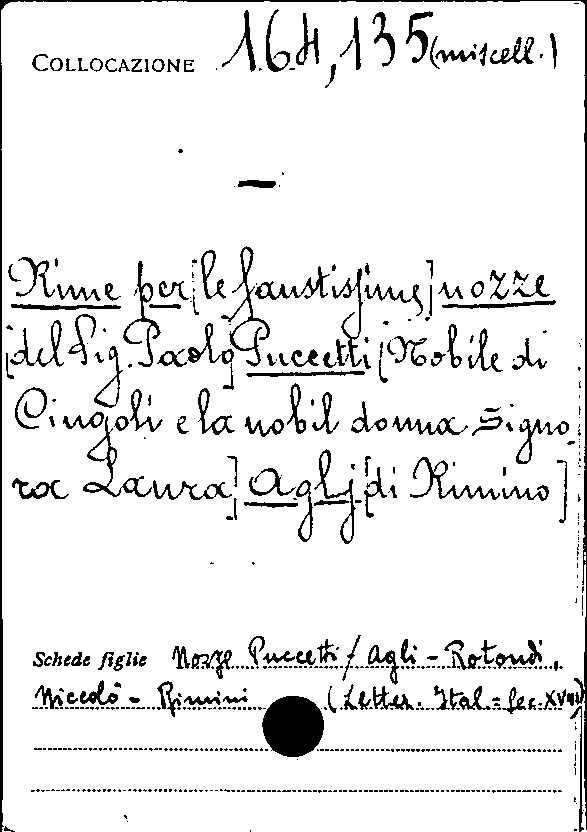 COLLOCAZIONE 164,135 (miscell.)
—
Rime per [le faustissime] nozze
[del Sig. Paolo] Puccetti [Nobile di
Cingoli e la nobil donna Signo
ra Laura] Aglj [di Rimino].
Schede figlie Nozze Puccetti / Agli - Rotondi,
Niccolò - Rimini (Letter. Ital = sec. XVIII)